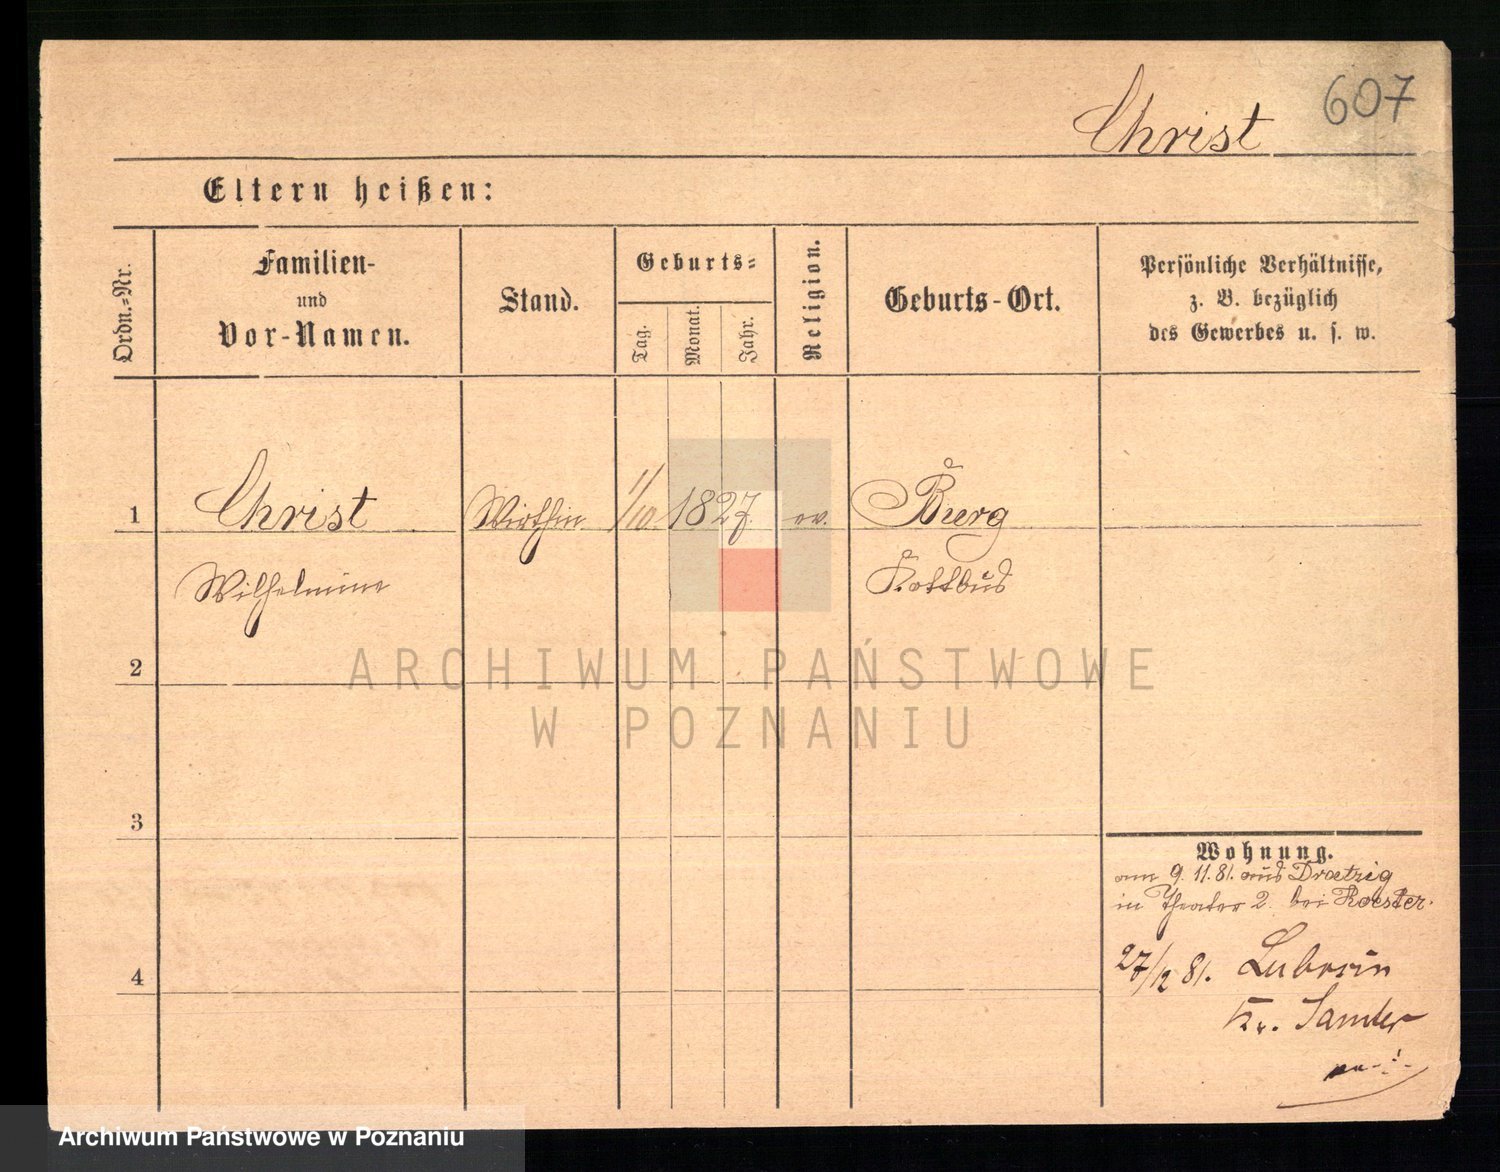 607
Christ
Eltern heißen:
Ordn.-Nr.
Familien-
und
Vor-Namen.
Stand.
Geburts-
Tag.
Monat.
Jahr.
Religion.
Geburts-Ort.
Persönliche Verhältnisse,
z. B. bezüglich
des Gewerbes u. s. w.
1
Christ
Wirthin
1/10
1827.
ev.
Burg
Wilhelmine
Kottbus
2
ARCHIWUM PAŃSTWOWE
W POZNANIU
3
Wohnung.
am 9. 11. 81. aus Dratzig
in Theater 2. bei Koester.
4
27/12 81. Lubosin
Kr. Samter
Archiwum Państwowe w Poznaniu